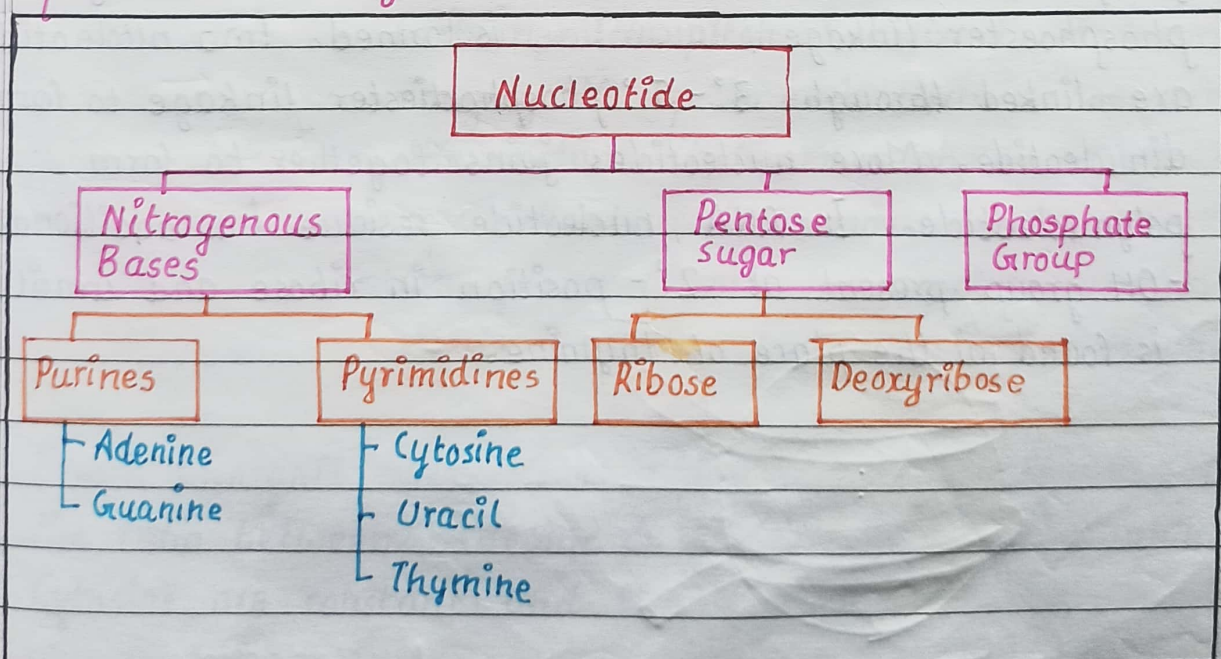 Nucleotide
Nitrogenous
Bases
Pentose
sugar
Phosphate
Group
Purines
Pyrimidines
Ribose
Deoxyribose
Adenine
Guanine
Cytosine
Uracil
Thymine